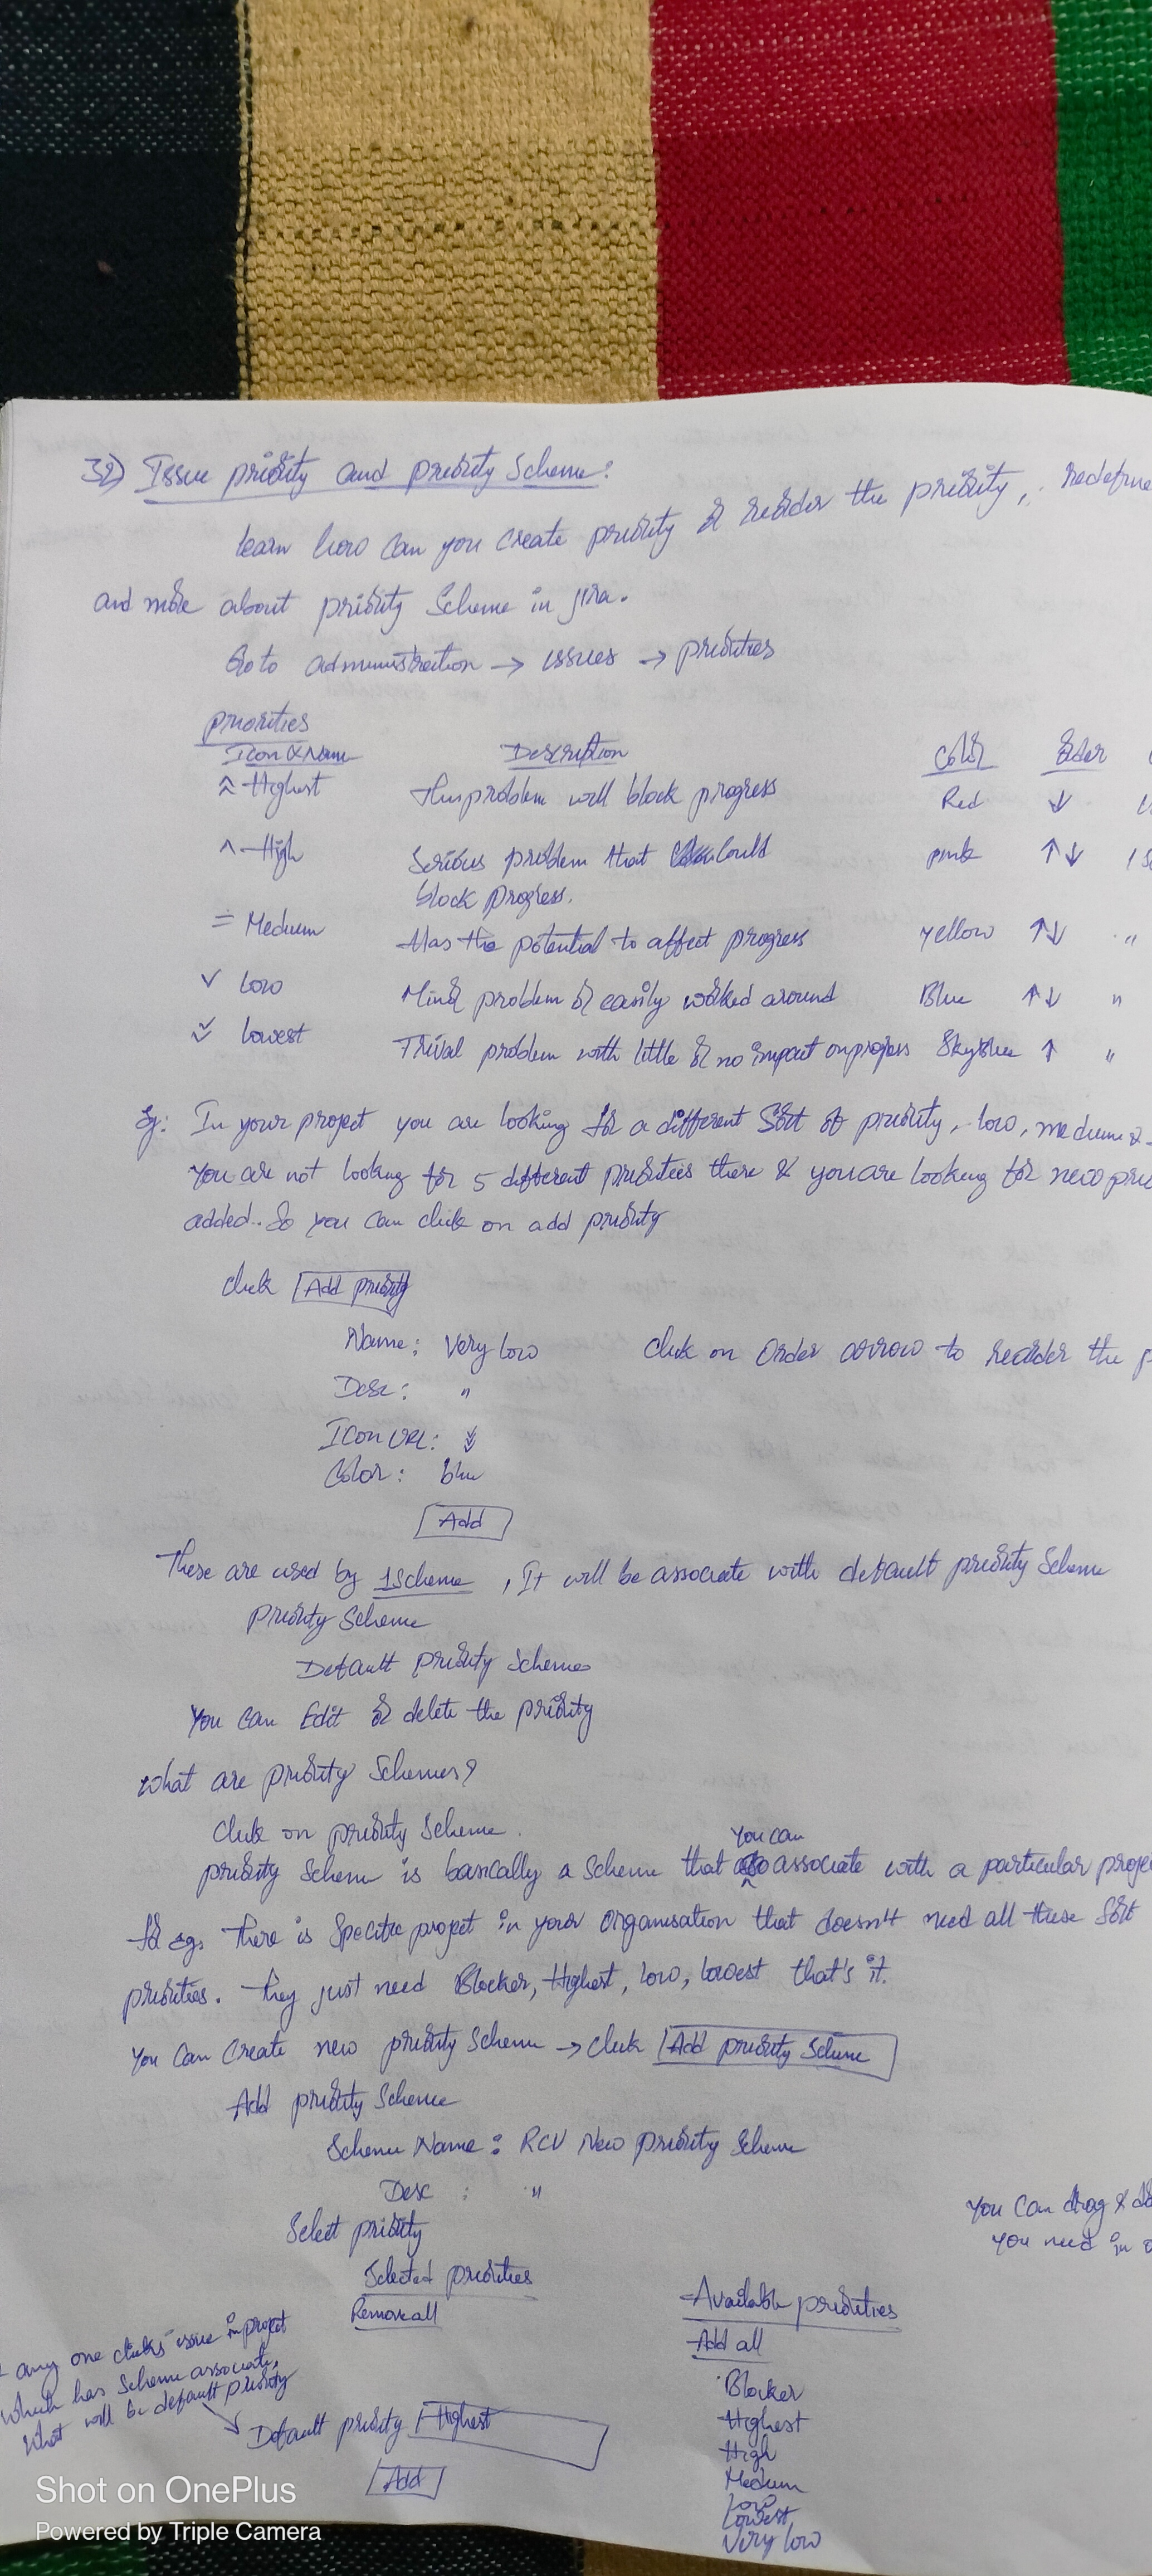 32) Issue priority and priority Scheme:
learn how can you create priority & reorder the priority, redefine
and more about priority Scheme in jira.
Go to administration → issues → priorities
priorities
Icon & Name Description Color Order
Highest This problem will block progress Red ↓
^ High Serious problem that could pink ↑↓
block progress.
= Medium Has the potential to affect progress yellow ↑↓ "
v low Minor problem or easily worked around Blue ↑↓ "
lowest Trival problem with little or no impact on progress Skyblue ↑ "
Eg: In your project you are looking for a different Sort of priority, low, medium &
You are not looking for 5 different priorities there & you are looking for new
added. So you can click on add priority
click Add priority
Name: Very low click on Order arrow to reorder the
Desc: "
Icon URL:
Color: blue
Add
These are used by 1 scheme, It will be associate with default priority Scheme
Priority Scheme
Default priority Schemes
You can Edit or delete the priority
What are priority Schemes?
Click on priority Scheme.
You can
priority Scheme is basically a Scheme that associate with a particular
for eg, There is Specific project in your organisation that doesn't need all these Sort
priorities. They just need Blocker, Highest, low, lowest that's it.
You can create new priority Scheme → click Add priority Scheme
Add priority Scheme
Scheme Name: RCV New priority Scheme
Desc : "
You can drag &
Select priority
you need in
Selected priorities Available priorities
Remove all Add all
any one clicks issue in project
which has Scheme associate,
what will be default priority
Default priority Highest
Add
Blocker
Highest
High
Medium
Low
Lowest
Very low
Shot on OnePlus
Powered by Triple Camera